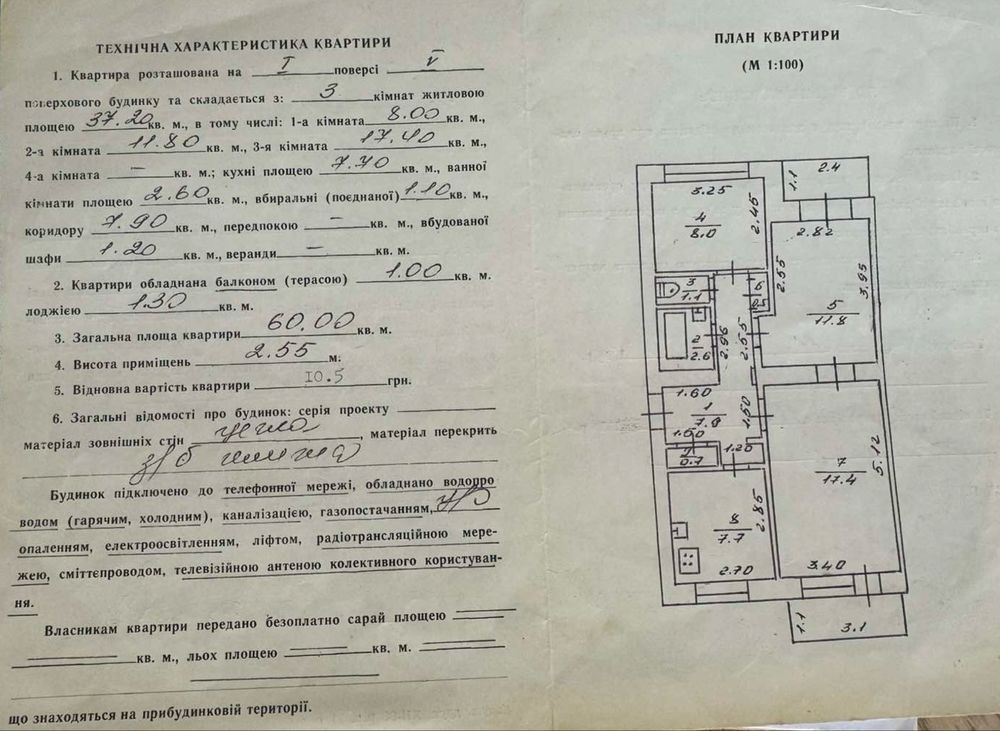 ТЕХНІЧНА ХАРАКТЕРИСТИКА КВАРТИРИ
1. Квартира розташована на I поверсі V
поверхового будинку та складається з: 3 кімнат житловою
площею 37.20 кв. м., в тому числі: 1-а кімната 8.00 кв. м.,
2-а кімната 11.80 кв. м., 3-я кімната 17.40 кв. м.,
4-а кімната — кв. м.; кухні площею 7.70 кв. м., ванної
кімнати площею 2.60 кв. м., вбиральні (поєднаної) 1.10 кв. м.,
коридору 7.90 кв. м., передпокою — кв. м., вбудованої
шафи 1.20 кв. м., веранди — кв. м.
2. Квартири обладнана балконом (терасою) 1.00 кв. м.
лоджією 1.30 кв. м.
3. Загальна площа квартири 60.00 кв. м.
4. Висота приміщень 2.55 м.
5. Відновна вартість квартири 10.5 грн.
6. Загальні відомості про будинок: серія проекту
матеріал зовнішніх стін цегла, матеріал перекрить
з/б плита
Будинок підключено до телефонної мережі, обладнано водопро
водом (гарячим, холодним), каналізацією, газопостачанням,
опаленням, електроосвітленням, ліфтом, радіотрансляційною мере-
жею, сміттєпроводом, телевізійною антеною колективного користуван-
ня.
Власникам квартири передано безоплатно сарай площею
кв. м., льох площею кв. м.
що знаходяться на прибудинковій території.
ПЛАН КВАРТИРИ
(М 1:100)
2.4
1.1
3.25
4
8.0
2.45
2.82
2.55
3.95
5
11.8
3
1.1
6
2
2.6
2.96
2.55
1.60
1
7.9
1.50
1.50
1.20
0.7
7
17.4
5.12
8
7.7
2.85
2.70
3.40
1.1
3.1